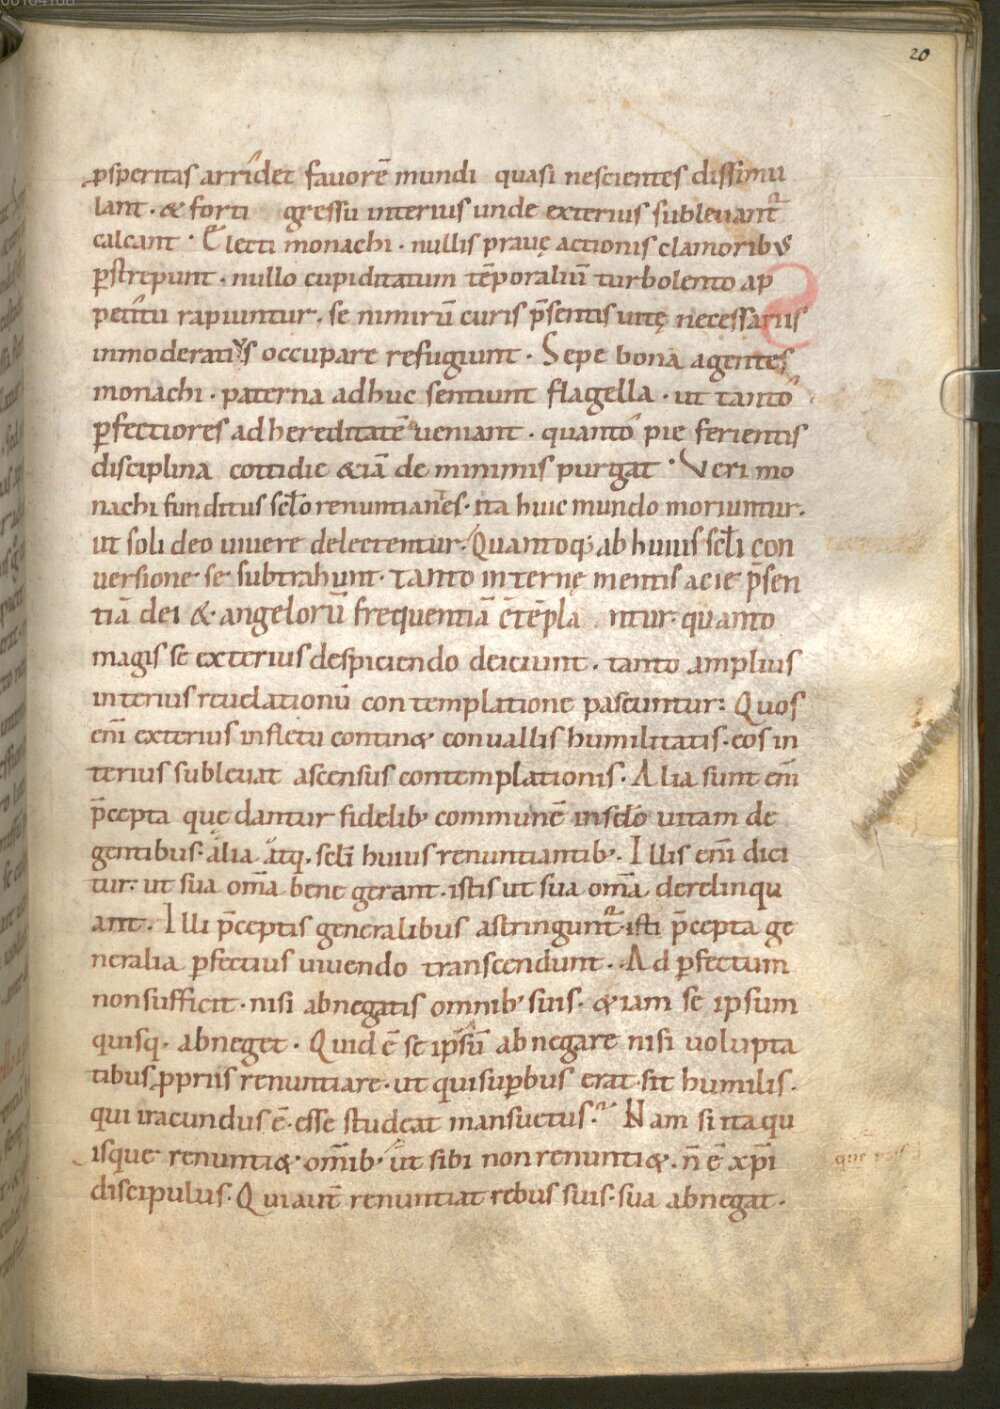 20
ꝓsperitas arridet favorē mundi quasi nescientes dissimu
lant · & forti gressu interius unde exterius sublevant᷑
calcant · Electi monachi · nullis pravę actionis clamorib;
ꝑstrepunt · nullo cupiditatum tēporaliū turbolento ap
petitu rapiuntur · se nimirū curis p̄sentis vitę necessariis
inmoderatis occupare refugiunt · Sepe bona agentes
monachi · paterna adhuc sentiunt flagella · ut tanto
ꝑfectiores ad hereditatē veniant · quanto pie ferientis
disciplina cottidie &iā de minimis purgat · Veri mo
nachi funditus sc̄lo renuntiantes · ita huic mundo moriuntur ·
ut soli deo vivere delectentur · Quantoq; ab huius sc̄li con
versione se subtrahunt · tanto internę mentis acie p̄sen
tiā dei & angelorū frequentiā c̄tēpla ntur · quanto
magis se exterius despiciendo deiciunt · tanto amplius
interius revelationū contemplatione pascuntur : Quos
eni̅ exterius infletu contin& convallis humilitatis · eos in
terius sublevat ascensus contemplationis · Alia sunt eni̅
p̄cepta quę dantur fidelib; communē in sc̄lo vitam de
gentibus · alia atq · sc̄li huius renuntiantib; · Illis eni̅ dici
tur : ut sua om̄a bene gerant · istis ut sua om̄a derelinqu
ant · Illi p̄ceptis generalibus astringunt᷑ · isti p̄cepta ge
neralia ꝑfectius vivendo transcendunt · Ad ꝑfectum
non sufficit · nisi abnegatis omnib; suis · &iam se ipsum
quisq · abneget · Quid ē se ip̄sū abnegare nisi volupta
tibus ꝓpriis renuntiare · ut qui suꝑbus erat · sit humilis ·
qui iracundus ē · esse studeat mansuetus · Nam si ita qu
isque renunti& om̄ib; ut sibi non renunti& · n̄ ē xp̄i
discipulus · Qui aut̄ renuntiat rebus suis · sua abnegat ·